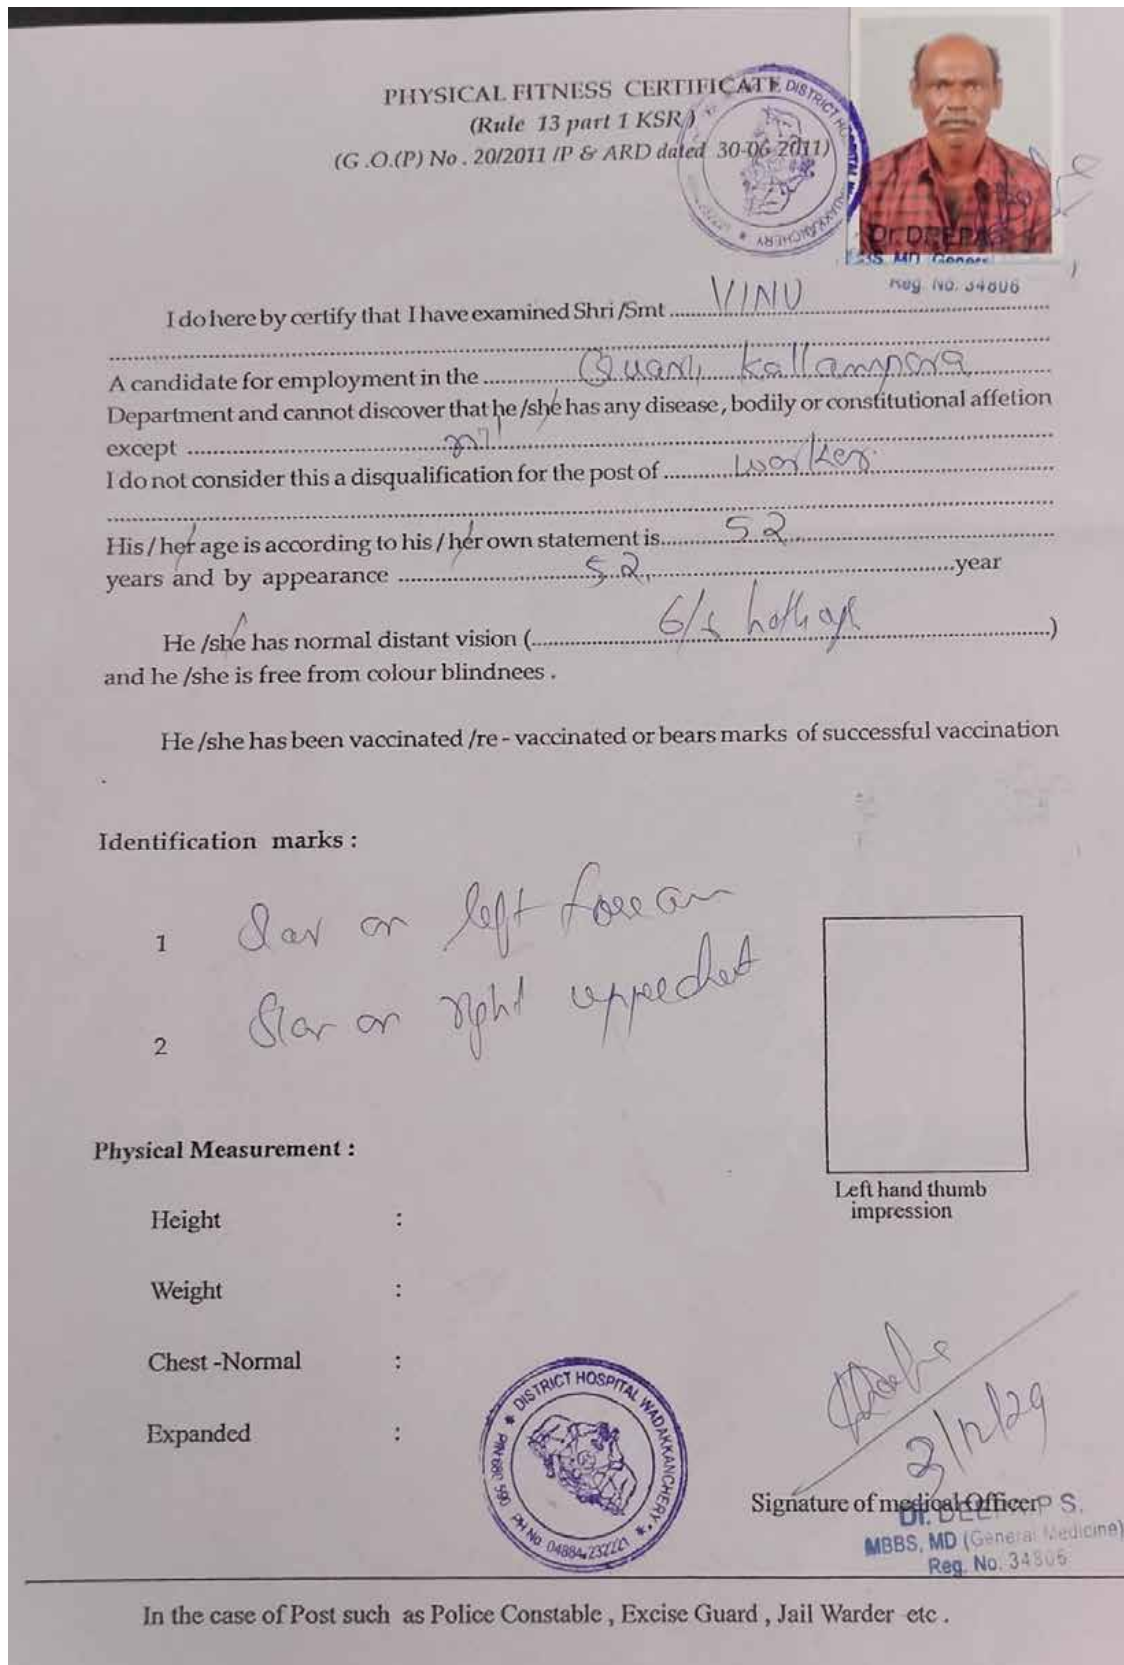 PHYSICAL FITNESS CERTIFICATE
(Rule 13 part 1 KSR)
(G .O.(P) No . 20/2011 /P & ARD dated 30-06-2011)
DISTRICT HOSPITAL WADAKKANCHERY
Dr. DEEPA
MD General
Reg. No. 34806
I do here by certify that I have examined Shri /Smt ........ VINU ........
A candidate for employment in the ........ Kallampara ........
Department and cannot discover that he /she has any disease, bodily or constitutional affetion
except ........ nil ........
I do not consider this a disqualification for the post of ........ worker ........
His / her age is according to his / her own statement is ........ 52 ........
years and by appearance ........ 52 ........ year
He /she has normal distant vision (........ 6/6 both eye ........)
and he /she is free from colour blindnees .
He /she has been vaccinated /re - vaccinated or bears marks of successful vaccination
.
Identification marks :
1 Scar on left forearm
2 Scar on right upper chest
Left hand thumb
impression
Physical Measurement :
Height :
Weight :
Chest -Normal :
Expanded :
DISTRICT HOSPITAL WADAKKANCHERY
PIN 680 590 PH No 04884-232221
Signature of medical Officer
Dr. DEEPA P S.
MBBS, MD (General Medicine)
Reg. No. 34806
In the case of Post such as Police Constable , Excise Guard , Jail Warder etc .